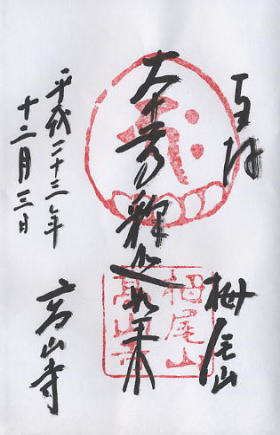 奉拝
栂尾山
釈迦如来
平成二十三年
十二月三日
高山寺
栂尾山
高山寺